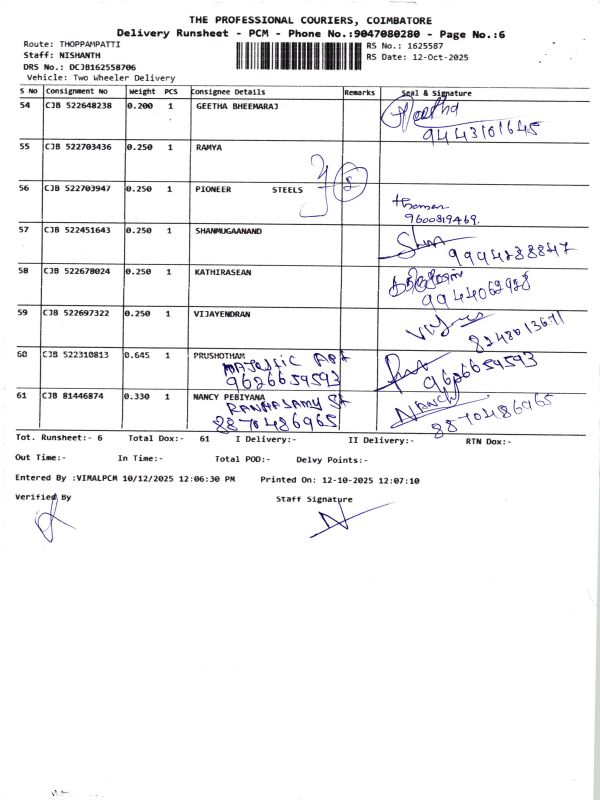 THE PROFESSIONAL COURIERS, COIMBATORE
Delivery Runsheet - PCM - Phone No.:9047080280 - Page No.:6
Route: THOPPAMPATTI
RS No.: 1625587
Staff: NISHANTH
RS Date: 12-Oct-2025
DRS No.: DCJB162558706
Vehicle: Two Wheeler Delivery
S No Consignment No Weight PCS Consignee Details Remarks Seal & Signature
54 CJB 522648238 0.200 1 GEETHA BHEEMARAJ
9443101645
55 CJB 522703436 0.250 1 RAMYA
56 CJB 522703947 0.250 1 PIONEER STEELS
9600819469.
57 CJB 522451643 0.250 1 SHANMUGAANAND
9994288847
58 CJB 522678024 0.250 1 KATHIRASEAN
9944062928
59 CJB 522697322 0.250 1 VIJAYENDRAN
8248013671
60 CJB 522310813 0.645 1 PRUSHOTHAM
9626659593 9626659593
61 CJB 81446874 0.330 1 NANCY PEBIYANA NANCY
8870486965 8870486965
Tot. Runsheet:- 6 Total Dox:- 61 I Delivery:- II Delivery:- RTN Dox:-
Out Time:- In Time:- Total POD:- Delvy Points:-
Entered By :VIMALPCM 10/12/2025 12:06:30 PM Printed On: 12-10-2025 12:07:10
Verified By Staff Signature